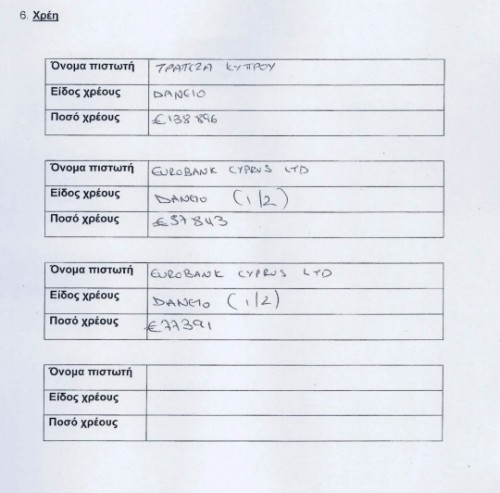 6. Χρέη
Όνομα πιστωτή ΤΡΑΠΕΖΑ ΚΥΠΡΟΥ
Είδος χρέους ΔΑΝΕΙΟ
Ποσό χρέους €138 896
Όνομα πιστωτή EUROBANK CYPRUS LTD
Είδος χρέους ΔΑΝΕΙΟ (1/2)
Ποσό χρέους €57843
Όνομα πιστωτή EUROBANK CYPRUS LTD
Είδος χρέους ΔΑΝΕΙΟ (1/2)
Ποσό χρέους €77391
Όνομα πιστωτή
Είδος χρέους
Ποσό χρέους